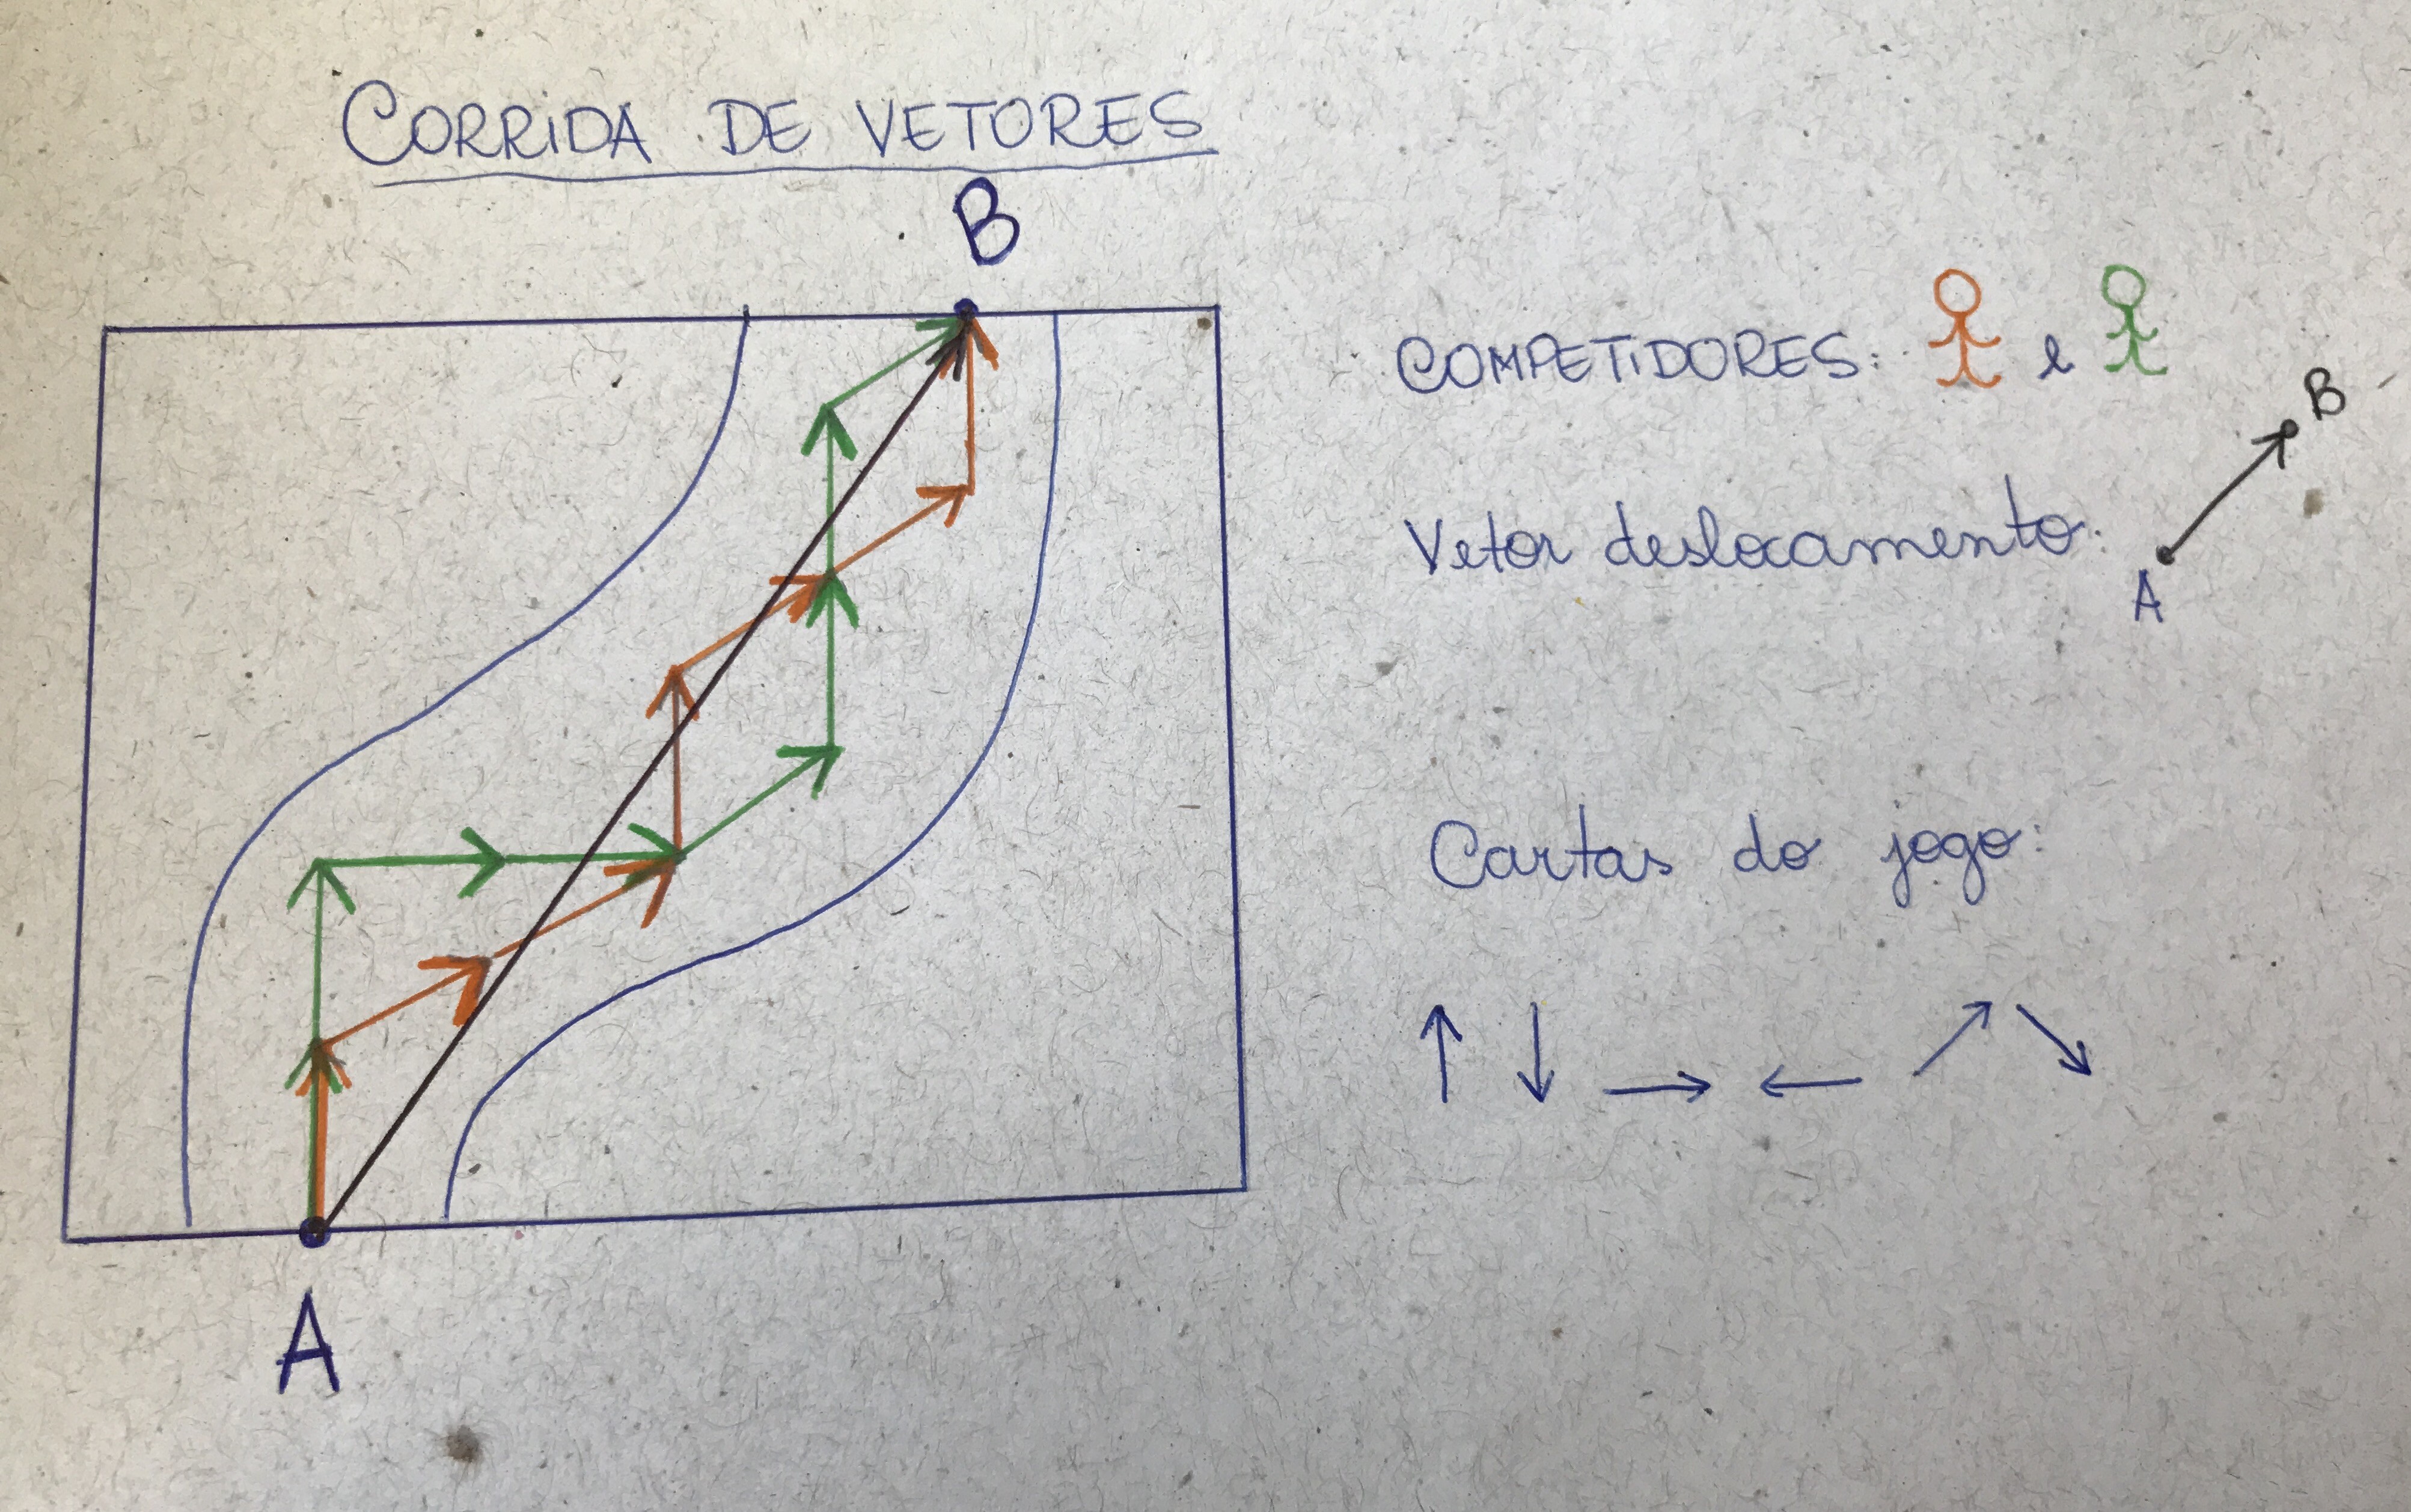 CORRIDA DE VETORES
B
COMPETIDORES: e
B
Vetor deslocamento:
A
Cartas do jogo:
A